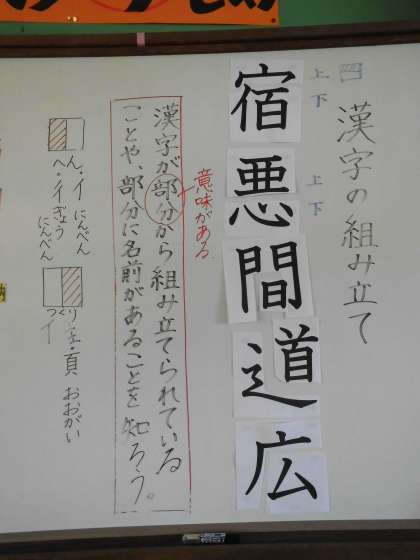 漢字の組み立て
上
下
上
下
宿悪間道広
意味がある
漢字が部分から組み立てられている
ことや、部分に名前があることを知ろう。
へん・イ にんべん
・彳ぎょうにんべん
つくり
・頁 おおがい